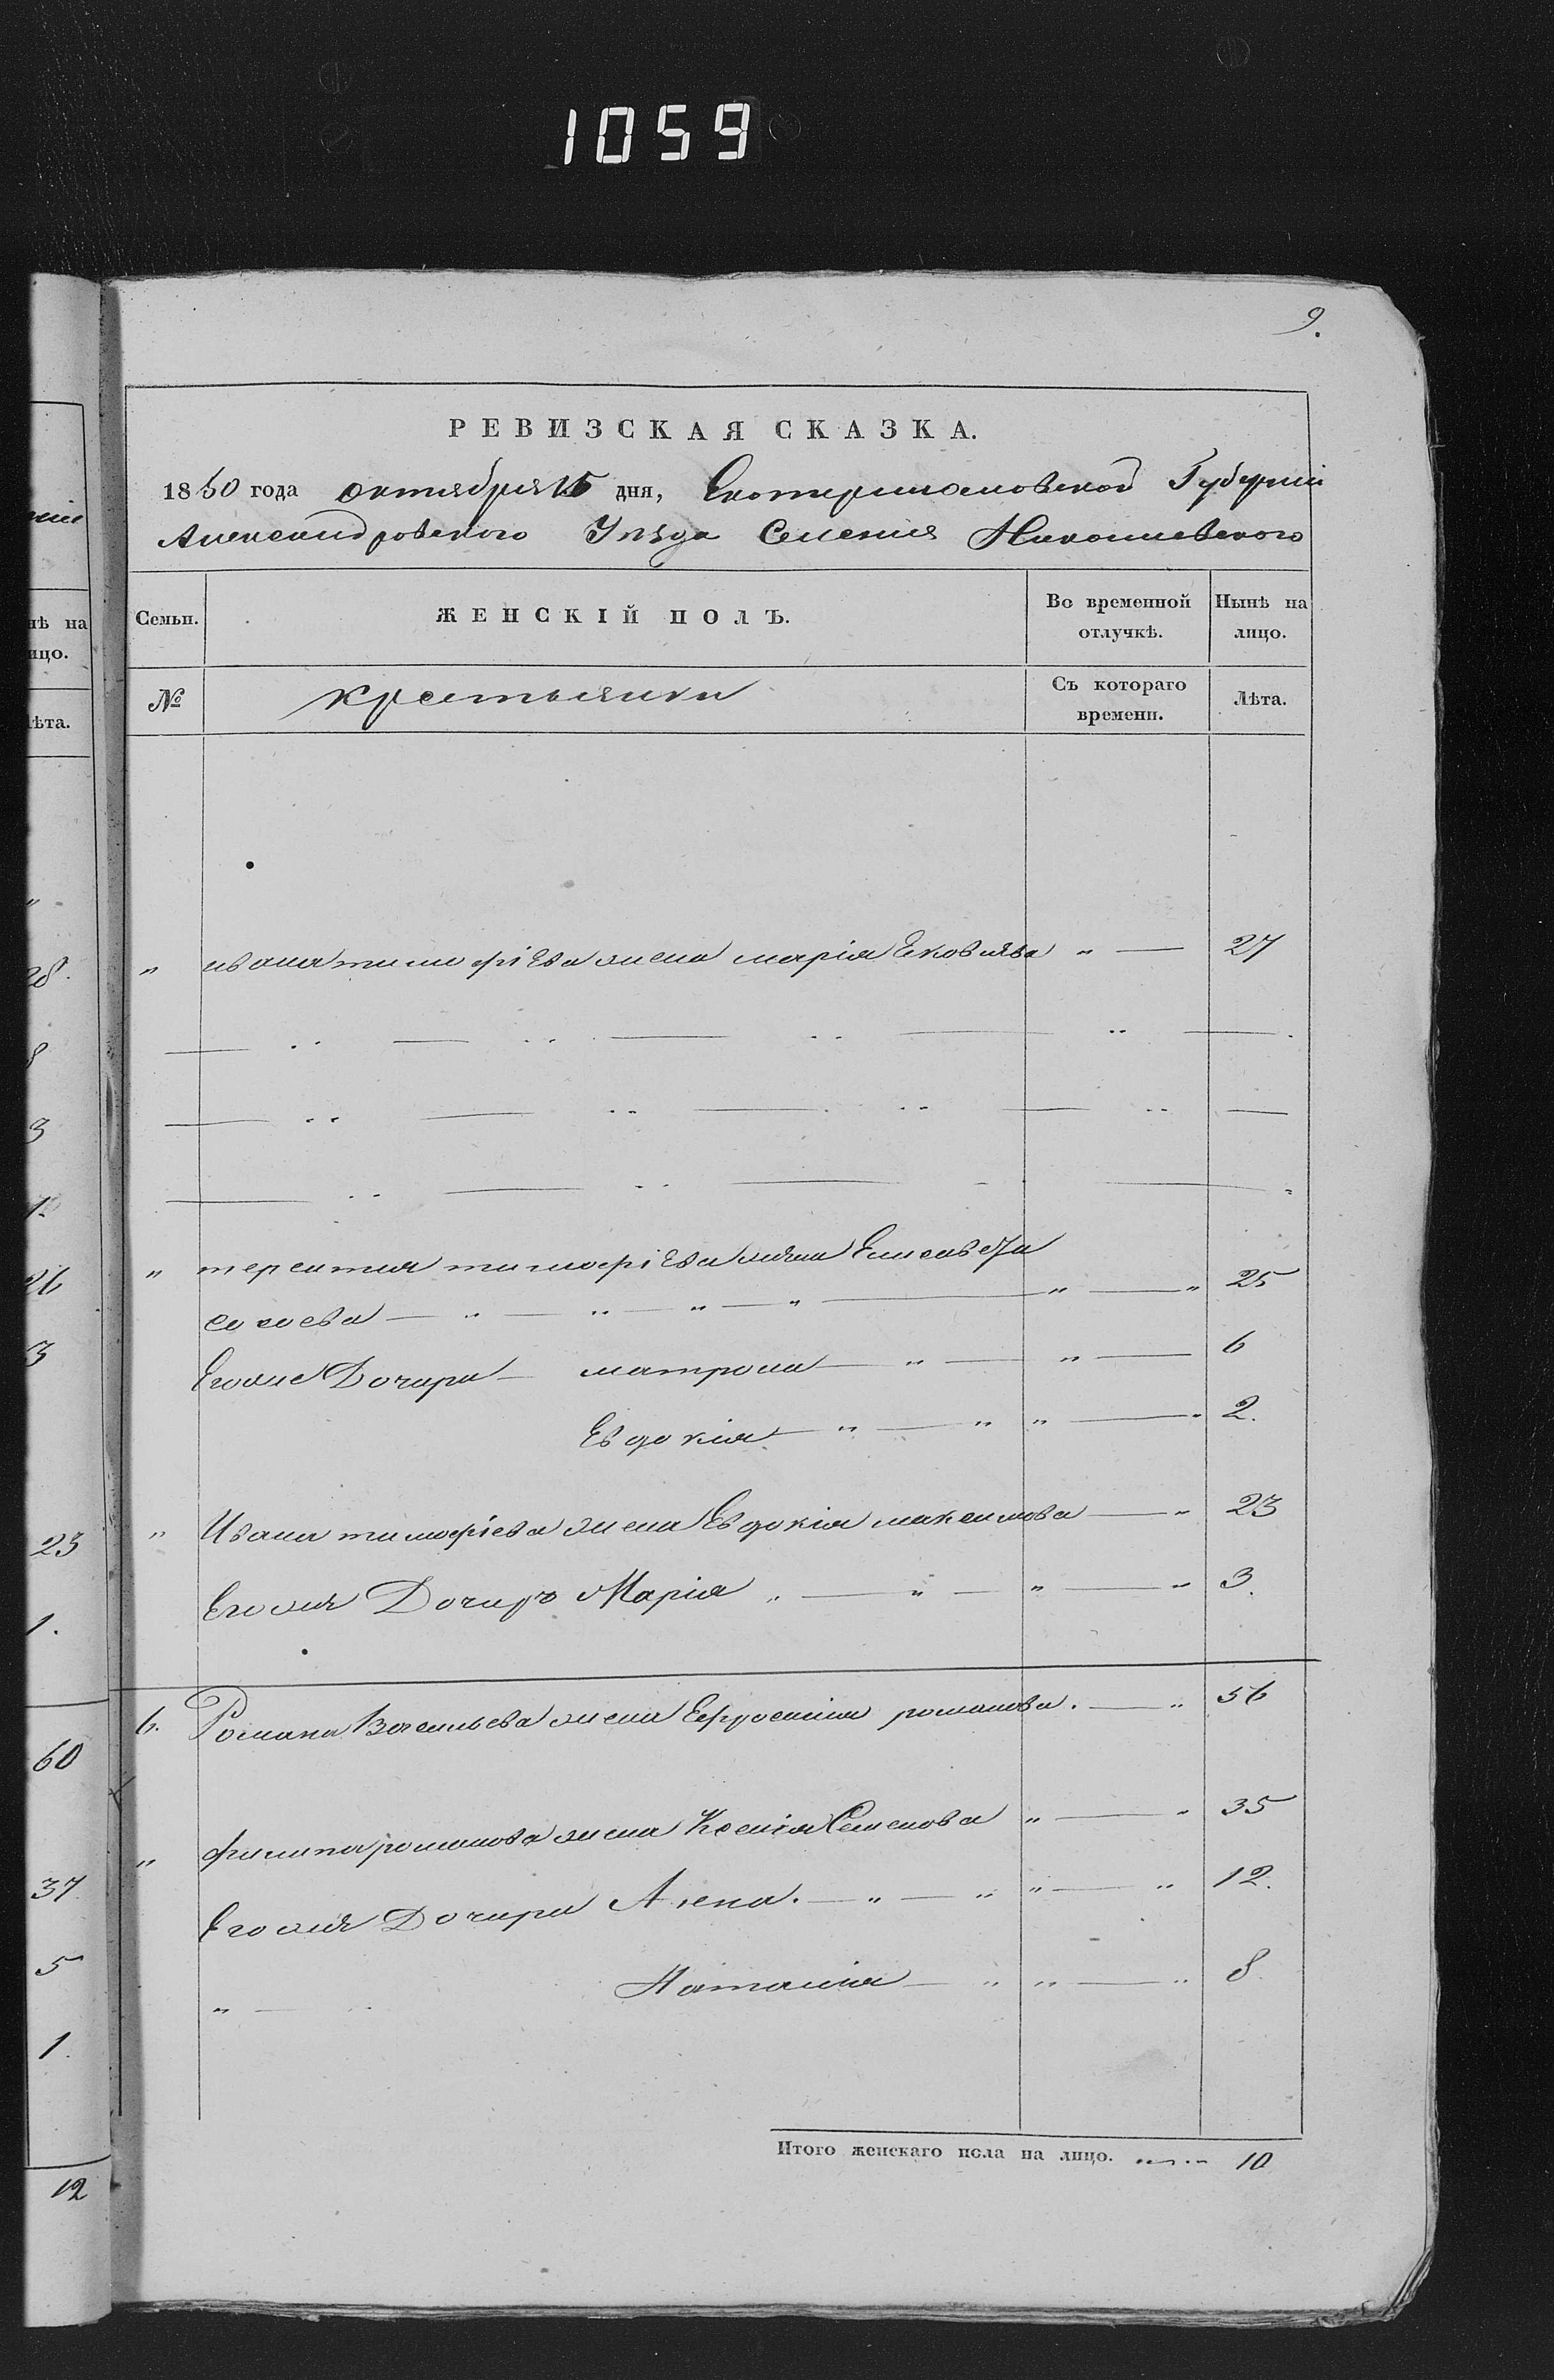 1059
9.
РЕВИЗСКАЯ СКАЗКА.
1850 года октября 15 дня, Екатеринославской Губернии
Александровского Уезда Селения Николаевского
Семьи. ЖЕНСКІЙ ПОЛЪ. Во временной отлучкѣ. Нынѣ на лицо.
№ крестьянки Съ котораго времени. Лѣта.
„ ивана тимофіева жена маріяЕковлева „ — 27
„ терентия тимофіева жена Елисавета
сосоева — „ — „ — „ — „ — „ — „ 25
Егоже Дочери — матрона — „ — „ — 6
Евдокия — „ — „ „ — „ 2.
„ Ивана тимофіева жена Евдокия максимова — „ 23
Егожа Дочерь Марія „ — „ — „ — „ 3.
6. Романа Васильева жена Ефросинии романова. — „ 56
„ филипа романова жена Ксения Семенова „ — „ 35
Егожя Дочери Агена. — „ — „ „ — „ 12.
„ — Наталия — „ „ — „ 8.
Итого женскаго пола на лицо. 10
нѣ на
ицо.
ѣта.
28.
8
3
1.
26
3
23
1.
60
37
5
1.
12